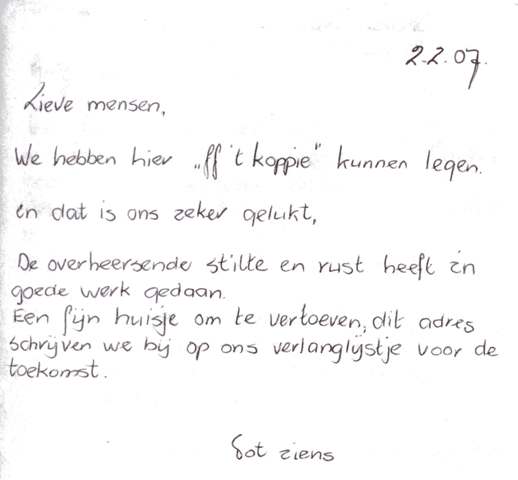 2.2.07.
Lieve mensen,
We hebben hier „ff 't koppie" kunnen legen.
en dat is ons zeker gelukt,
De overheersende stilte en rust heeft zn
goede werk gedaan.
Een fijn huisje om te vertoeven, dit adres
schrijven we bij op ons verlanglijstje voor de
toekomst.
Tot ziens